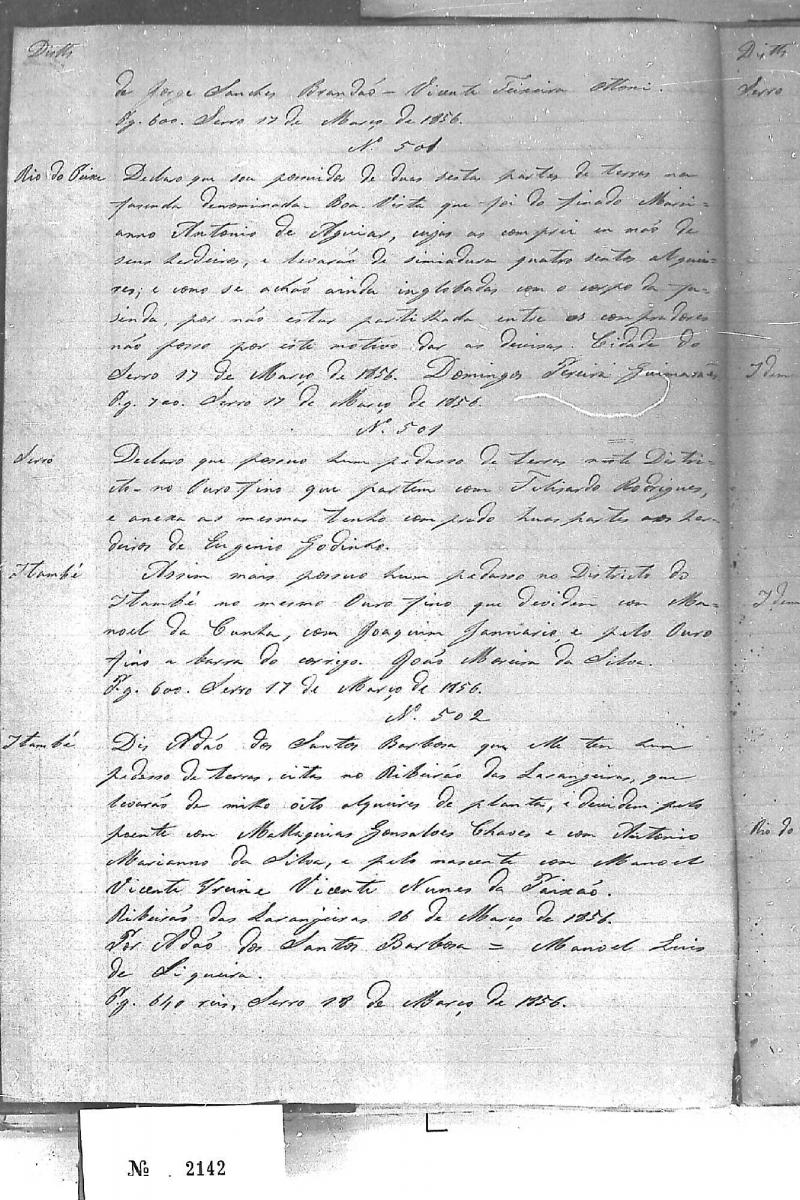 Distᵒˢ
de Jorge Sanches Brandaõ - Vicente Teixeira Ottoni.
Pg. 600. Serro 17 de Março de 1856.
Nº 501
Rio do Peixe Declaro que sou possuidor de duas sestas partes de terras na
fasenda denominada Boa Vista que foi do finado Marci-
anno Antonio de Aguiar, cujas as comprei en maõ de
seus herdeiros, e levaraõ de simiadura quatro sentos alquei-
res; e como se achaõ ainda inglobadas com o corpo da fa-
senda, por naõ estar partilhada entre os compradores
naõ posso por este motivo dar as devisas. Cidade do
Serro 17 de Março de 1856. Domingos Pereira Guimarães
Pg. 720. Serro 17 de Março de 1856.
Nº 501
Serro Declaro que possuo hum pedasso de terras neste Distri-
cto no Ouro fino que partem com Felisardo Rodrigues,
e anexa as mesmas tenho comprado huas partes aos her-
deiros de Eugenio Godinho.
Itambé Assim mais possuo hum pedasso no Districto do
Itambé no mesmo Ouro fino que devidem com Ma-
noel da Cunha, com Joaquim Jannuario, e pelo Ouro
fino a barra do corrigo. Joaõ Moreira da Silva.
Pg. 600. Serro 17 de Março de 1856.
Nº 502
Itambé Dis Adaõ dos Santos Barbosa que elle tem hum
pedasso de terras, citas no Ribeiraõ das Larangeiras, que
levaraõ de milho oito alqueires de planta, e devidem pelo
poente com Mallaquias Gonsalves Chaves e com Antonio
Marianno da Silva, e pelo nascente com Manoel
Vicente Vieira e Vicente Nunes da Paixaõ.
Ribeiraõ das Larangeiras 16 de Março de 1856.
Por Adaõ dos Santos Barbosa = Manoel Luis
de Siqueira.
Pg. 640 reis, Serro 18 de Março de 1856.
Distᵒˢ
Serro
Idem
Idem
Rio do
Nº 2142